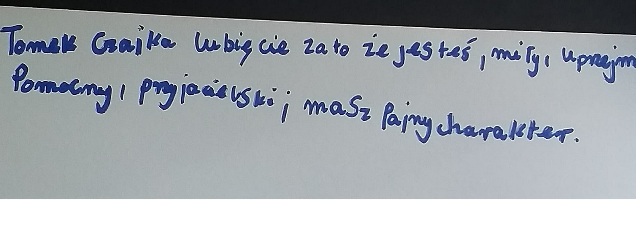 Tomek Czajka lubię cie za to że jesteś, miły, uprzejm
Pomocny, przyjacielski, masz fajny charakter.